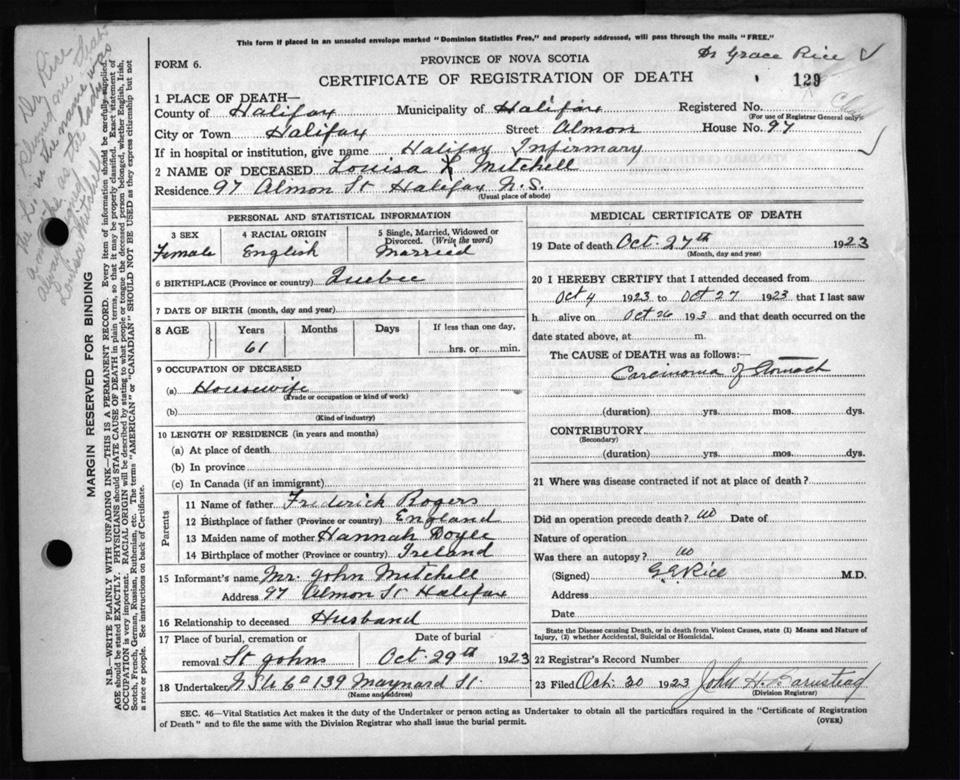 This form if placed in an unsealed envelope marked "Dominion Statistics Free," and properly addressed, will pass through the mails "FREE."
Dr Grace Rice
FORM 6.
PROVINCE OF NOVA SCOTIA
CERTIFICATE OF REGISTRATION OF DEATH
129
1 PLACE OF DEATH—
County of Halifax Municipality of Halifax Registered No.
(For use of Registrar General only)
City or Town Halifax Street Almon House No. 97
If in hospital or institution, give name Halifax Infirmary
2 NAME OF DECEASED Louisa Mitchell
Residence 97 Almon St Halifax N.S.
(Usual place of abode)
PERSONAL AND STATISTICAL INFORMATION
3 SEX
Female
4 RACIAL ORIGIN
English
5 Single, Married, Widowed or Divorced. (Write the word)
Married
6 BIRTHPLACE (Province or country) Quebec
7 DATE OF BIRTH (month, day and year)
8 AGE Years Months Days If less than one day,
61 hrs. or min.
9 OCCUPATION OF DECEASED
(a) Housewife
(Trade or occupation or kind of work)
(b)
(Kind of industry)
10 LENGTH OF RESIDENCE (in years and months)
(a) At place of death
(b) In province
(c) In Canada (if an immigrant)
Parents
11 Name of father Frederick Rogers
12 Birthplace of father (Province or country) England
13 Maiden name of mother Hannah Doyle
14 Birthplace of mother (Province or country) Ireland
15 Informant's name Mr. John Mitchell
Address 97 Almon St Halifax
16 Relationship to deceased Husband
17 Place of burial, cremation or removal St Johns
Date of burial
Oct. 29th 1923
18 Undertaker 139 Maynard St.
(Name and address)
MEDICAL CERTIFICATE OF DEATH
19 Date of death Oct. 27th 1923
(Month, day and year)
20 I HEREBY CERTIFY that I attended deceased from
Oct 4 1923 to Oct 27 1923 that I last saw
h alive on Oct 26 193 and that death occurred on the
date stated above, at m.
The CAUSE OF DEATH was as follows:—
Carcinoma of Stomach
(duration) yrs. mos. dys.
CONTRIBUTORY
(Secondary)
(duration) yrs. mos. dys.
21 Where was disease contracted if not at place of death?
Did an operation precede death? no Date of
Nature of operation
Was there an autopsy? no
(Signed) G.E. Rice M.D.
Address
Date
State the Disease causing Death, or in death from Violent Causes, state (1) Means and Nature of Injury, (2) whether Accidental, Suicidal or Homicidal.
22 Registrar's Record Number
23 Filed Oct. 30 1923 John H. Barnstead
(Division Registrar)
SEC. 46—Vital Statistics Act makes it duty of the Undertaker or person acting as Undertaker to obtain all the particulars required in the "Certificate of Registration
of Death" and to file the same with the Division Registrar who shall issue the burial permit.
(OVER)
MARGIN RESERVED FOR BINDING
N.B.—WRITE PLAINLY WITH UNFADING INK—THIS IS A PERMANENT RECORD. Every item of information should be carefully supplied.
AGE should be stated EXACTLY. PHYSICIANS should STATE CAUSE OF DEATH in plain terms, so that it may be properly classified. Exact statement of
OCCUPATION is very important. RACIAL ORIGIN will be described by stating to what people or tongue the deceased person belonged, whether English, Irish,
Scotch, French, German, Russian, Ruthenian, etc. The terms "AMERICAN" or "CANADIAN" SHOULD NOT BE USED as they express citizenship but not
a race or people. See instructions on back of Certificate.